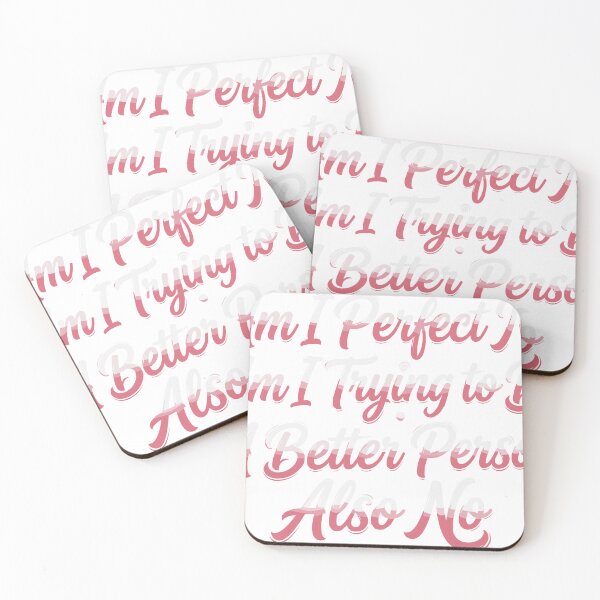 Am I Perfect
m I Trying to
Am I Perfect
m I Trying to B
Better Perso
Am I Perfect
m I Trying to B
Better
Also
Am I Perfect
m I Trying to B
Better Perso
Also No